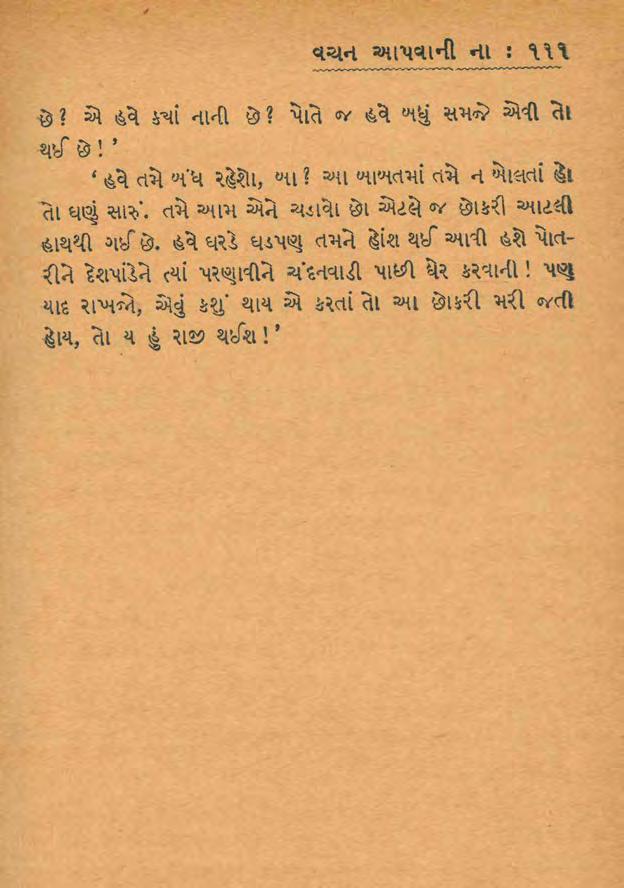 વચન આપવાની ના : ૧૧૧
છે? એ હવે ક્યાં નાની છે? પોતે જ હવે બધું સમજે એવી તો
થઈ છે!’
‘હવે તમે બંધ રહેશો, બા? આ બાબતમાં તમે ન બોલતાં હો
તો ઘણું સારું. તમે આમ એને ચડાવો છો એટલે જ છોકરી આટલી
હાથથી ગઈ છે. હવે ઘરડે ઘડપણ તમને હોંશ થઈ આવી હશે પોત-
રીને દેશપાંડેને ત્યાં પરણાવીને ચંદનવાડી પાછી ઘેર કરવાની! પણ
યાદ રાખજો, એવું કશું થાય એ કરતાં તો આ છોકરી મરી જતી
હોય, તો ય હું રાજી થઈશ!’